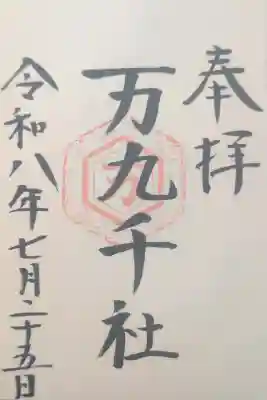 奉拝
万九千社
令和八年七月二十五日